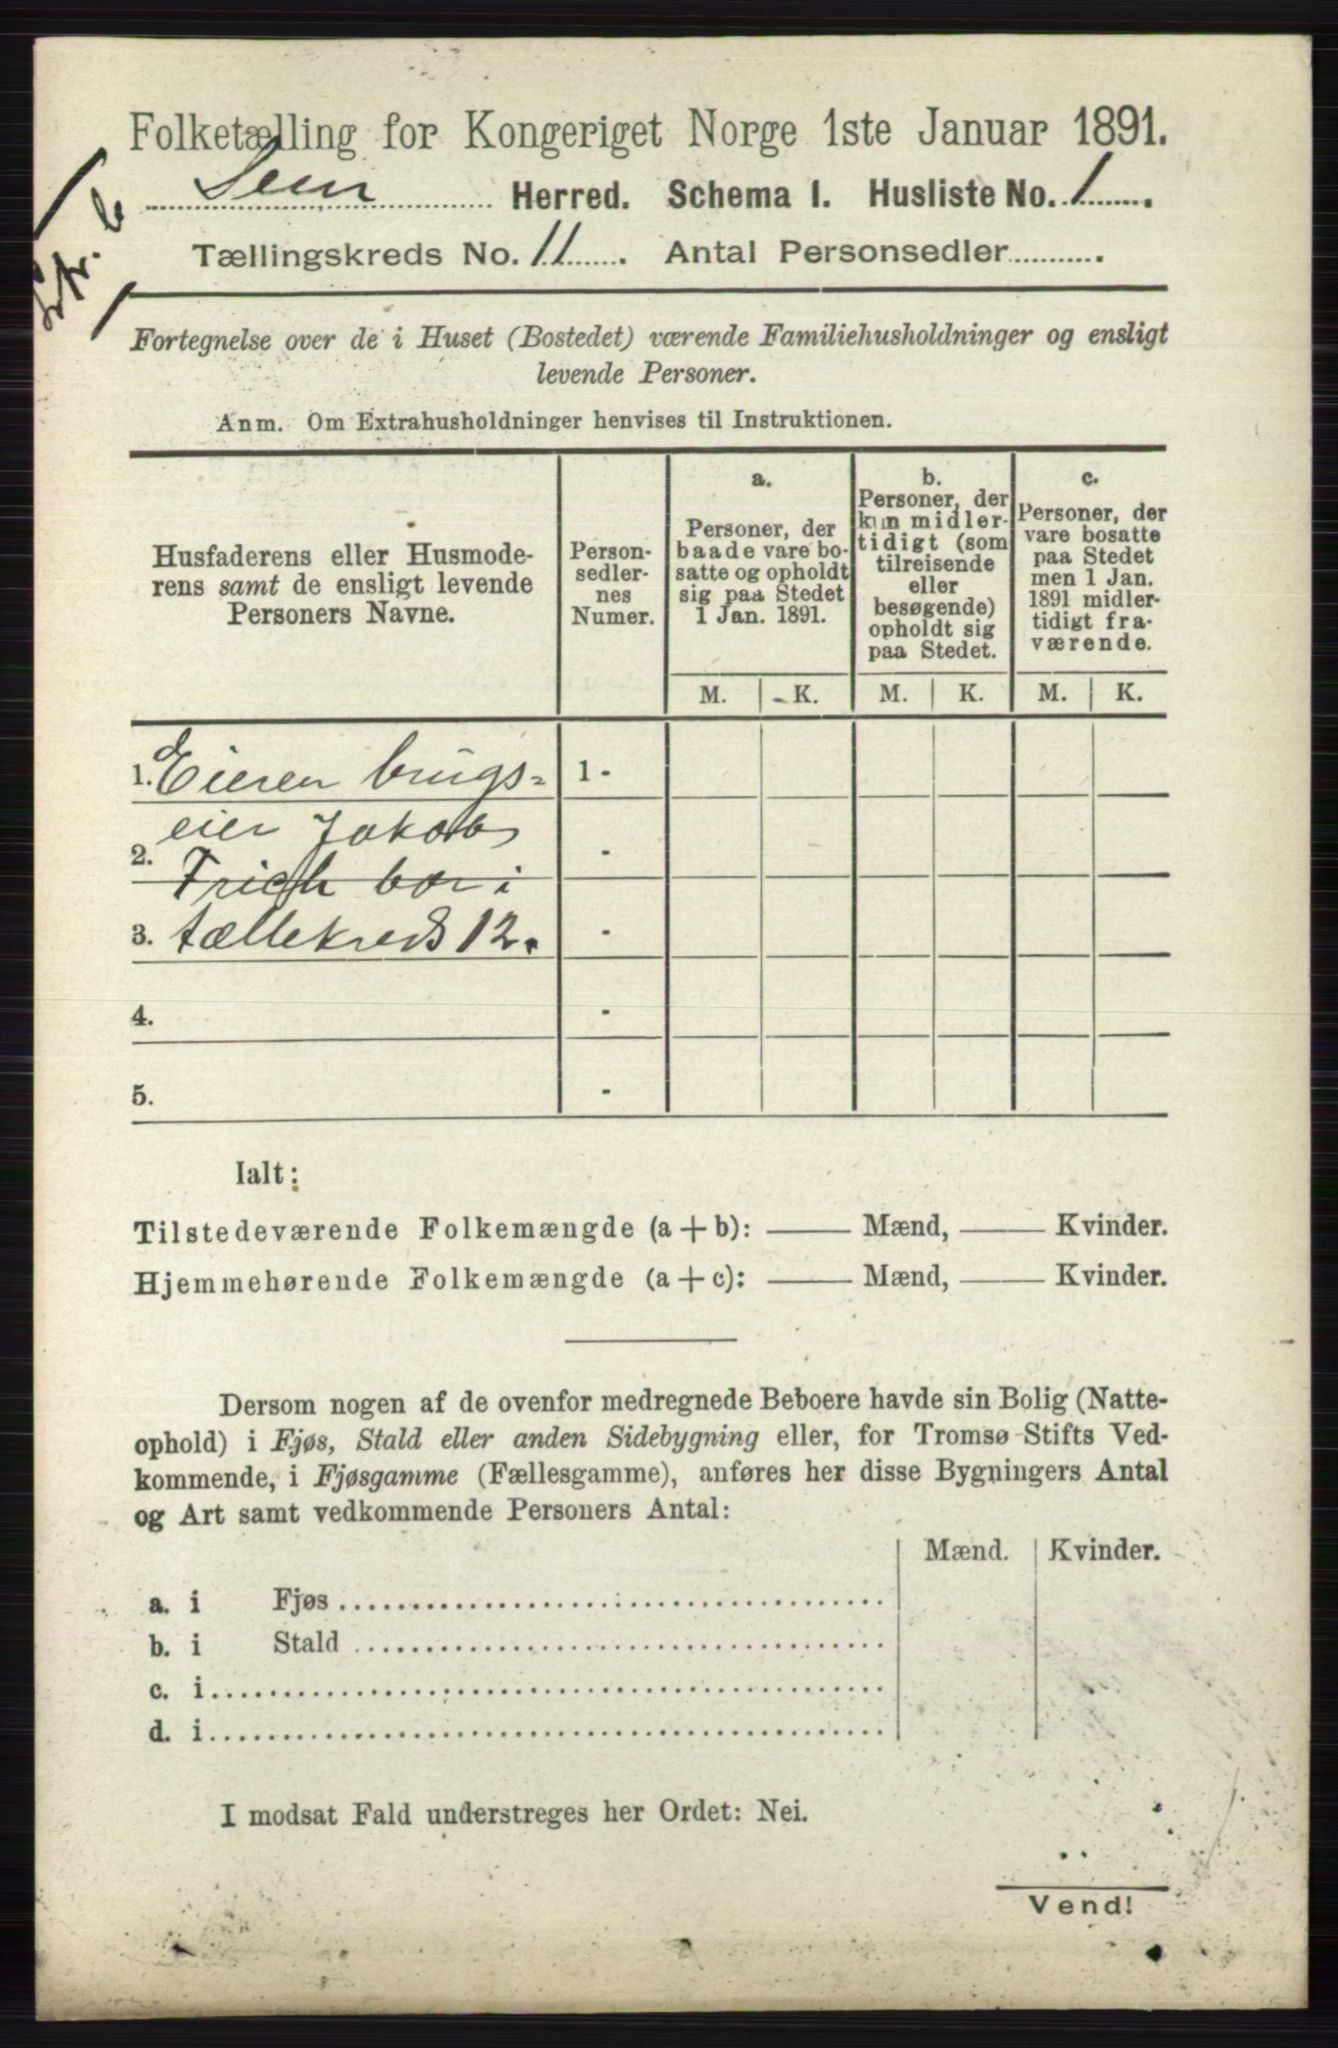 Folketælling for Kongeriget Norge 1ste Januar 1891.
Sem Herred. Schema I. Husliste No. 1
Tællingskreds No. 11 Antal Personsedler
Fortegnelse over de i Huset (Bostedet) værende Familiehusholdninger og ensligt
levende Personer.
Anm. Om Extrahusholdninger henvises til Instruktionen.
Husfaderens eller Husmode-
rens samt de ensligt levende
Personers Navne.
Person-
sedler-
nes
Numer.
a.
Personer, der
baade vare bo-
satte og opholdt
sig paa Stedet
1 Jan. 1891.
b.
Personer, der
kun midler-
tidigt (som
tilreisende
eller
besøgende)
opholdt sig
paa Stedet.
c.
Personer, der
vare bosatte
paa Stedet
men 1 Jan.
1891 midler-
tidigt fra-
værende.
M. K. M. K. M. K.
1. Eieren brugs= 1 -
eier Jakob
2. -
bor i
3. tællekreds 12. -
4. -
5. -
Ialt:
Tilstedeværende Folkemængde (a + b): Mænd, Kvinder.
Hjemmehørende Folkemængde (a + c): Mænd, Kvinder.
Dersom nogen af de ovenfor medregnede Beboere havde sin Bolig (Natte-
ophold) i Fjøs, Stald eller anden Sidebygning eller, for Tromsø Stifts Ved-
kommende, i Fjøsgamme (Fællesgamme), anføres her disse Bygningers Antal
og Art samt vedkommende Personers Antal:
Mænd. Kvinder.
a. i Fjøs
b. i Stald
c. i
d. i
I modsat Fald understreges her Ordet: Nei.
Vend!